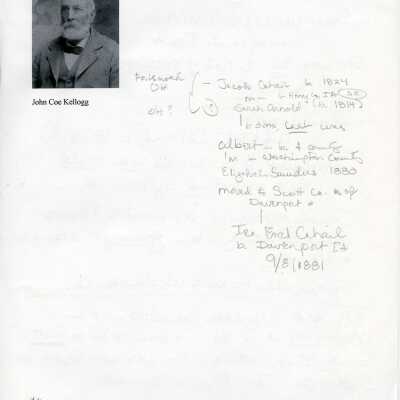 John Coe Kellogg
OH
OH ?
Jacob Cahail b. 1824
m - in Henry Co IA
Sarah Arnold (b. 1814)
6 sons, last was
Albert - in b. county
m in Washington County
Elizabeth Saunders 1880
moved to Scott Co.
Davenport
Ira Bret Cahail
b. Davenport IA
9/8/1881